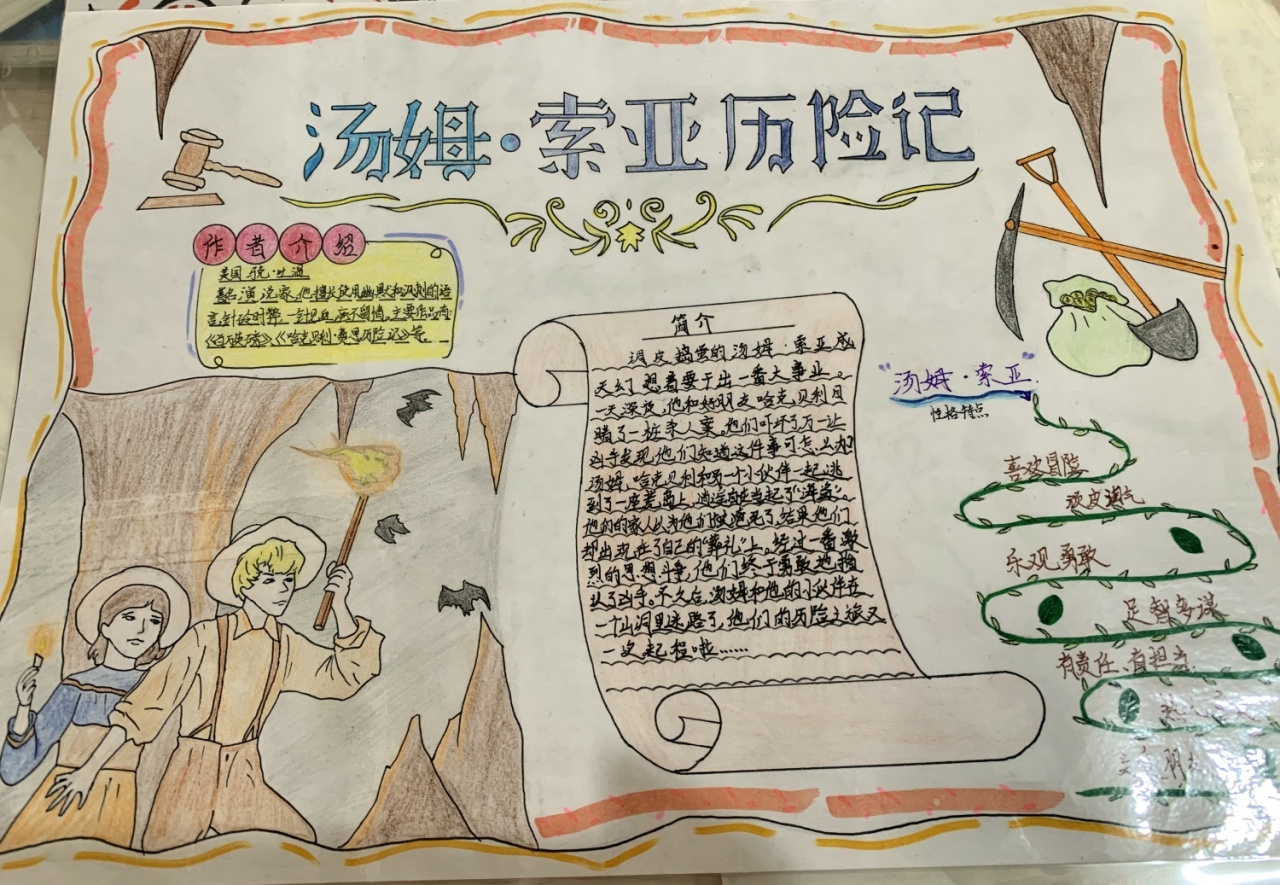 汤姆·索亚历险记
作者介绍
美国 马克·吐温
著名演说家,他擅长使用幽默和讽刺的语
言,针砭时弊,一针见血,毫不留情。主要作品有:
《百万英磅》《哈克贝利·费恩历险记》等。
简介
调皮捣蛋的汤姆·索亚成
天幻想着要干出一番大事业。
一天深夜,他和好朋友哈克贝利目
睹了一桩杀人案。他们吓坏了,万一让
凶手发现他们知道这件事可怎么办?
汤姆、哈克贝利和另一个小伙伴一起逃
到了一座荒岛上,逍遥自在当起了“海盗”。
他们的家人以为他们被淹死了,结果他们
却出现在了自己的“葬礼”上。经过一番激
烈的思想斗争,他们终于勇敢地指
认了凶手。不久后,汤姆和他的小伙伴在
一个山洞里迷路了,他们的历险之旅又
一次起程啦……
“汤姆·索亚”
性格特点
喜欢冒险
顽皮淘气
乐观勇敢
足智多谋
有责任、有担当